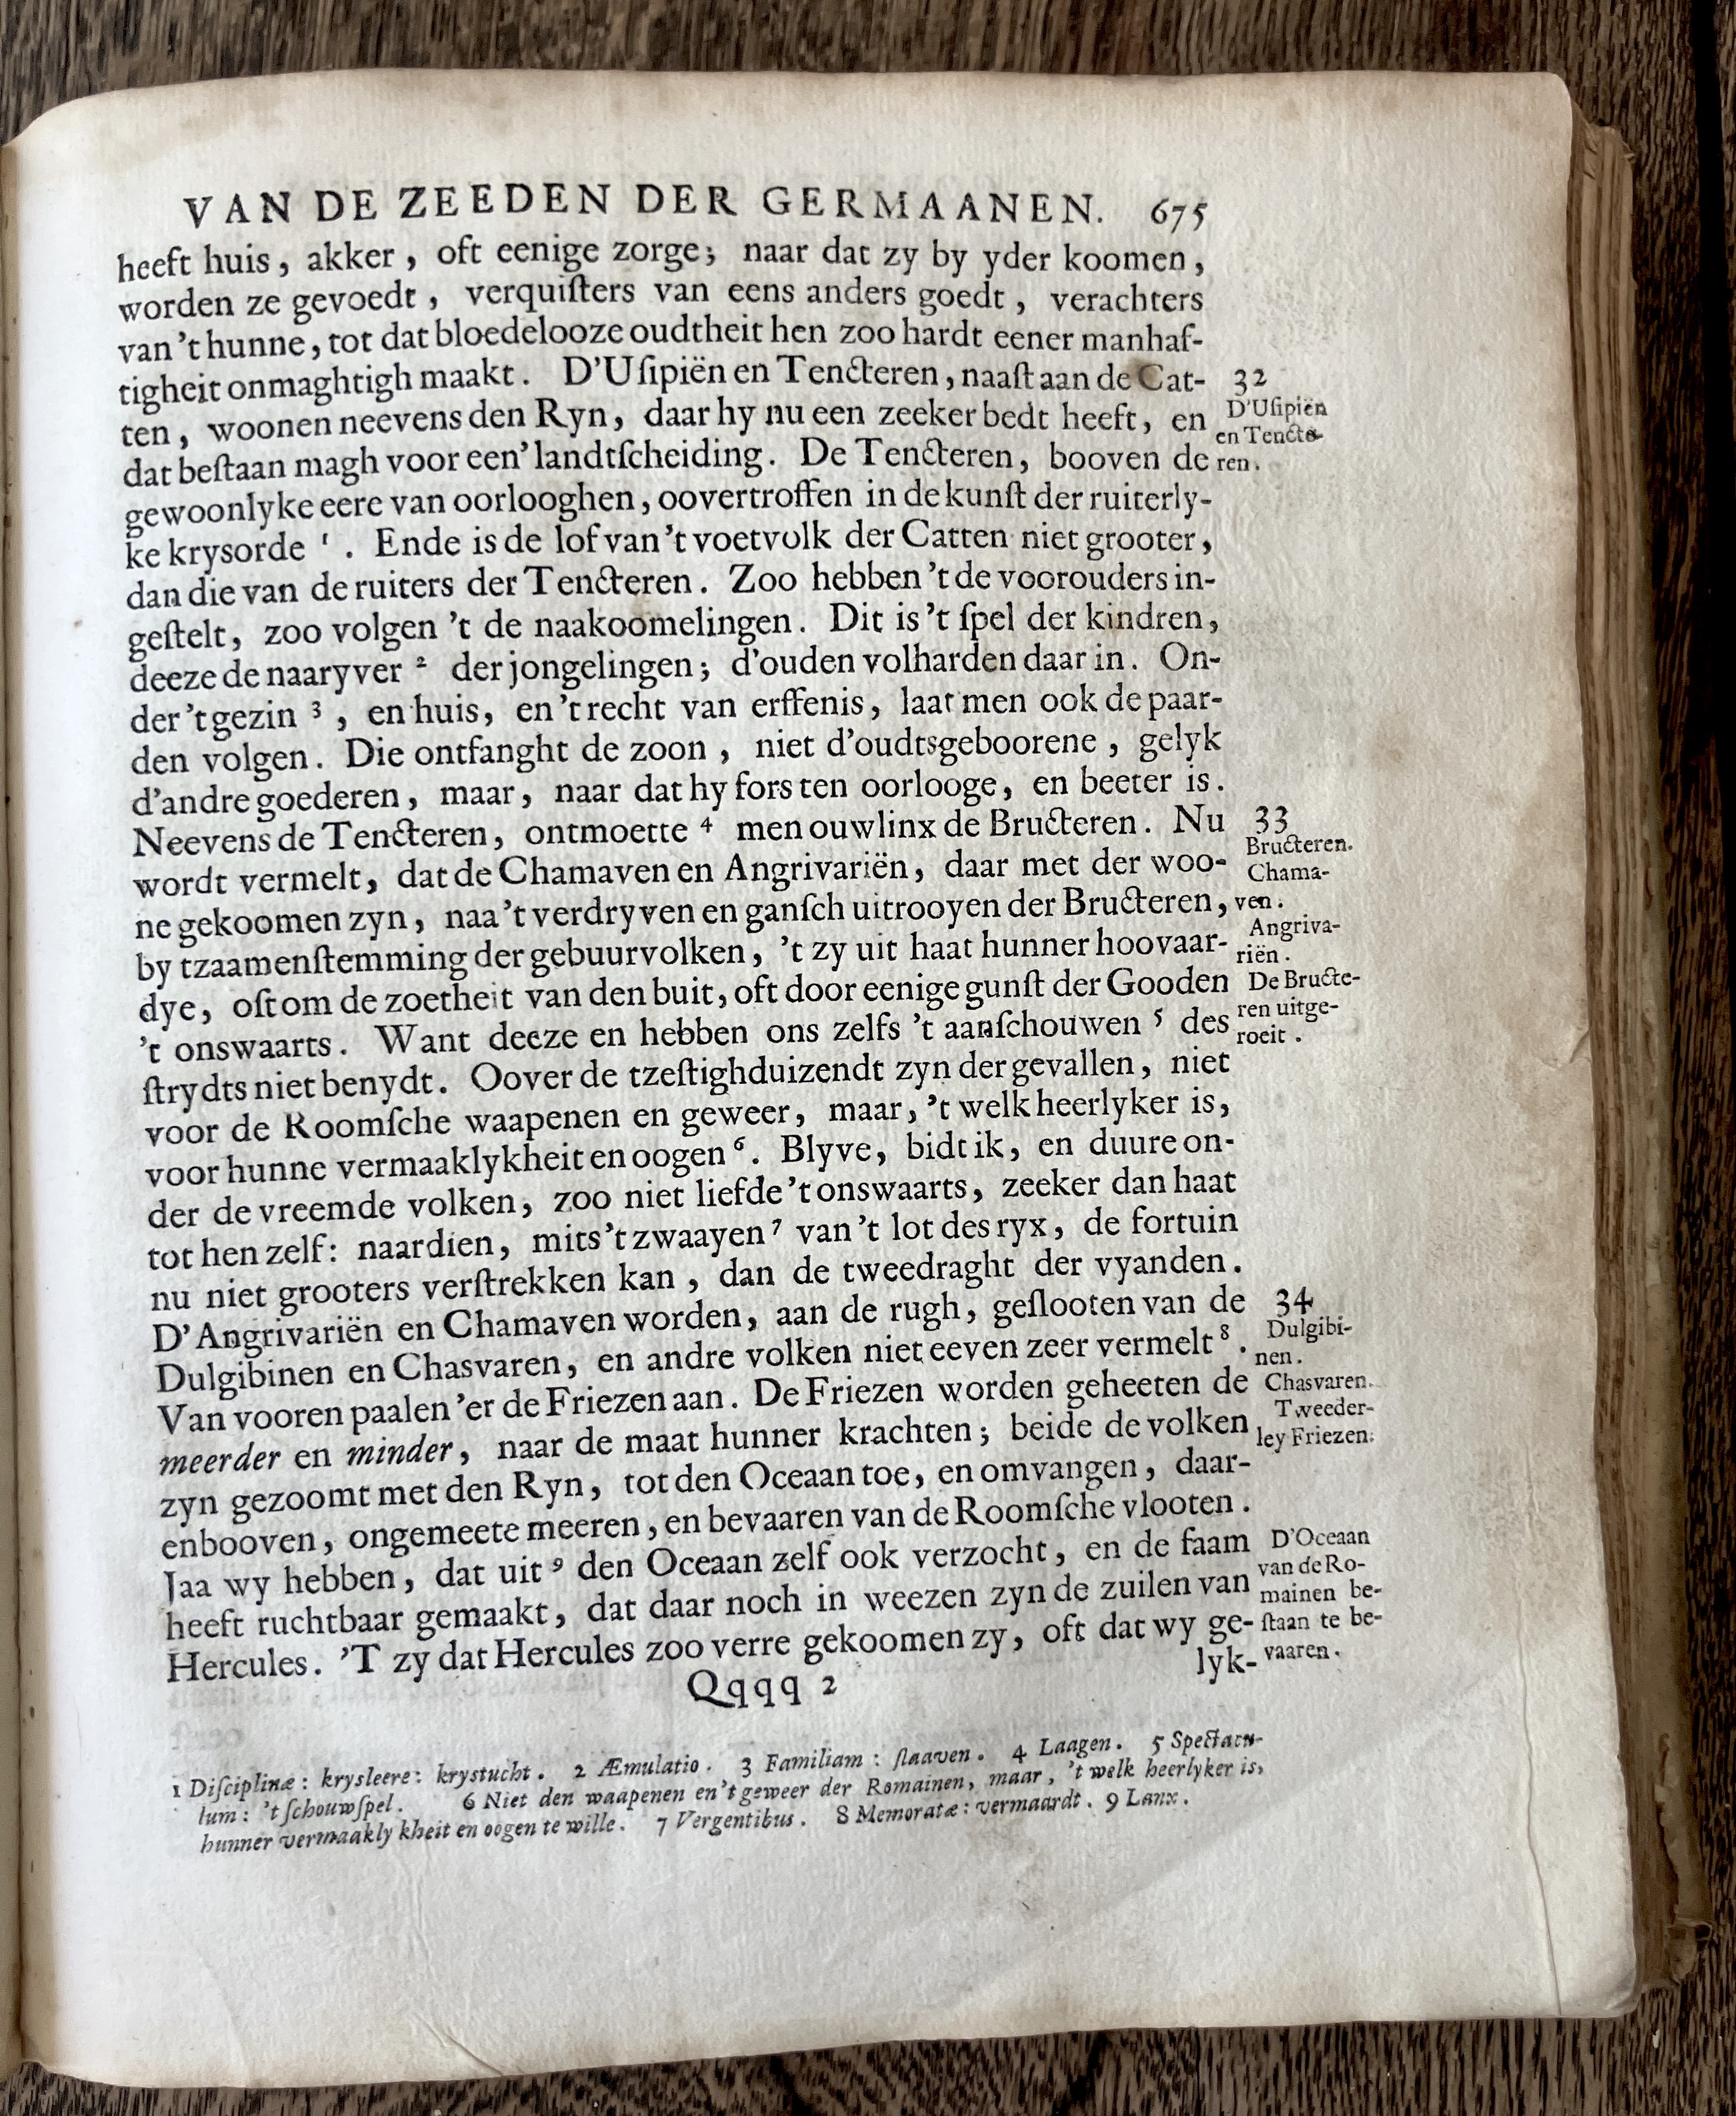 VAN DE ZEEDEN DER GERMAANEN. 675
heeft huis, akker, oft eenige zorge; naar dat zy by yder koomen,
worden ze gevoedt, verquiſters van eens anders goedt, verachters
van 't hunne, tot dat bloedelooze oudtheit hen zoo hardt eener manhaf-
tigheit onmaghtigh maakt. D'Uſipiën en Tencteren, naaſt aan de Cat-
ten, woonen neevens den Ryn, daar hy nu een zeeker bedt heeft, en
dat beſtaan magh voor een' landtſcheiding. De Tencteren, booven de
gewoonlyke eere van oorlooghen, oovertroffen in de kunſt der ruiterly-
ke krysorde ¹. Ende is de lof van 't voetvolk der Catten niet grooter,
dan die van de ruiters der Tencteren. Zoo hebben 't de voorouders in-
geſtelt, zoo volgen 't de naakoomelingen. Dit is 't ſpel der kindren,
deeze de naaryver ² der jongelingen; d'ouden volharden daar in. On-
der 't gezin ³, en huis, en 't recht van erffenis, laat men ook de paar-
den volgen. Die ontfanght de zoon, niet d'oudtsgeboorene, gelyk
d'andre goederen, maar, naar dat hy fors ten oorlooge, en beeter is.
Neevens de Tencteren, ontmoette ⁴ men ouwlinx de Bructeren. Nu
wordt vermelt, dat de Chamaven en Angrivariën, daar met der woo-
ne gekoomen zyn, naa 't verdryven en ganſch uitrooyen der Bructeren,
by tzaamenſtemming der gebuurvolken, 't zy uit haat hunner hoovaar-
dye, oft om de zoetheit van den buit, oft door eenige gunſt der Gooden
't onswaarts. Want deeze en hebben ons zelfs 't aanſchouwen ⁵ des
ſtrydts niet benydt. Oover de tzeſtighduizendt zyn der gevallen, niet
voor de Roomſche waapenen en geweer, maar, 't welk heerlyker is,
voor hunne vermaaklykheit en oogen ⁶. Blyve, bidt ik, en duure on-
der de vreemde volken, zoo niet liefde 't onswaarts, zeeker dan haat
tot hen zelf: naardien, mits 't zwaayen ⁷ van 't lot des ryx, de fortuin
nu niet grooters verſtrekken kan, dan de tweedraght der vyanden.
D'Angrivariën en Chamaven worden, aan de rugh, geſlooten van de
Dulgibinen en Chasvaren, en andre volken niet eeven zeer vermelt ⁸.
Van vooren paalen 'er de Friezen aan. De Friezen worden geheeten de
meerder en minder, naar de maat hunner krachten; beide de volken
zyn gezoomt met den Ryn, tot den Oceaan toe, en omvangen, daar-
enbooven, ongemeete meeren, en bevaaren van de Roomſche vlooten.
Jaa wy hebben, dat uit ⁹ den Oceaan zelf ook verzocht, en de faam
heeft ruchtbaar gemaakt, dat daar noch in weezen zyn de zuilen van
Hercules. 'T zy dat Hercules zoo verre gekoomen zy, oft dat wy ge-
lyk-
Qqqq 2
32
D'Uſipiën
en Tencte-
ren.
33
Bructeren.
Chama-
ven.
Angriva-
riën.
De Bructe-
ren uitge-
roeit.
34
Dulgibi-
nen.
Chasvaren.
Tweeder-
ley Friezen.
D'Oceaan
van de Ro-
mainen be-
ſtaan te be-
vaaren.
1 Diſciplinæ: krysleere: krystucht. 2 Æmulatio. 3 Familiam: ſlaaven. 4 Laagen. 5 Spectacu-
lum: 't ſchouwſpel. 6 Niet den waapenen en 't geweer der Romainen, maar, 't welk heerlyker is,
hunner vermaaklykheit en oogen te wille. 7 Vergentibus. 8 Memoratæ: vermaardt. 9 Lanx.